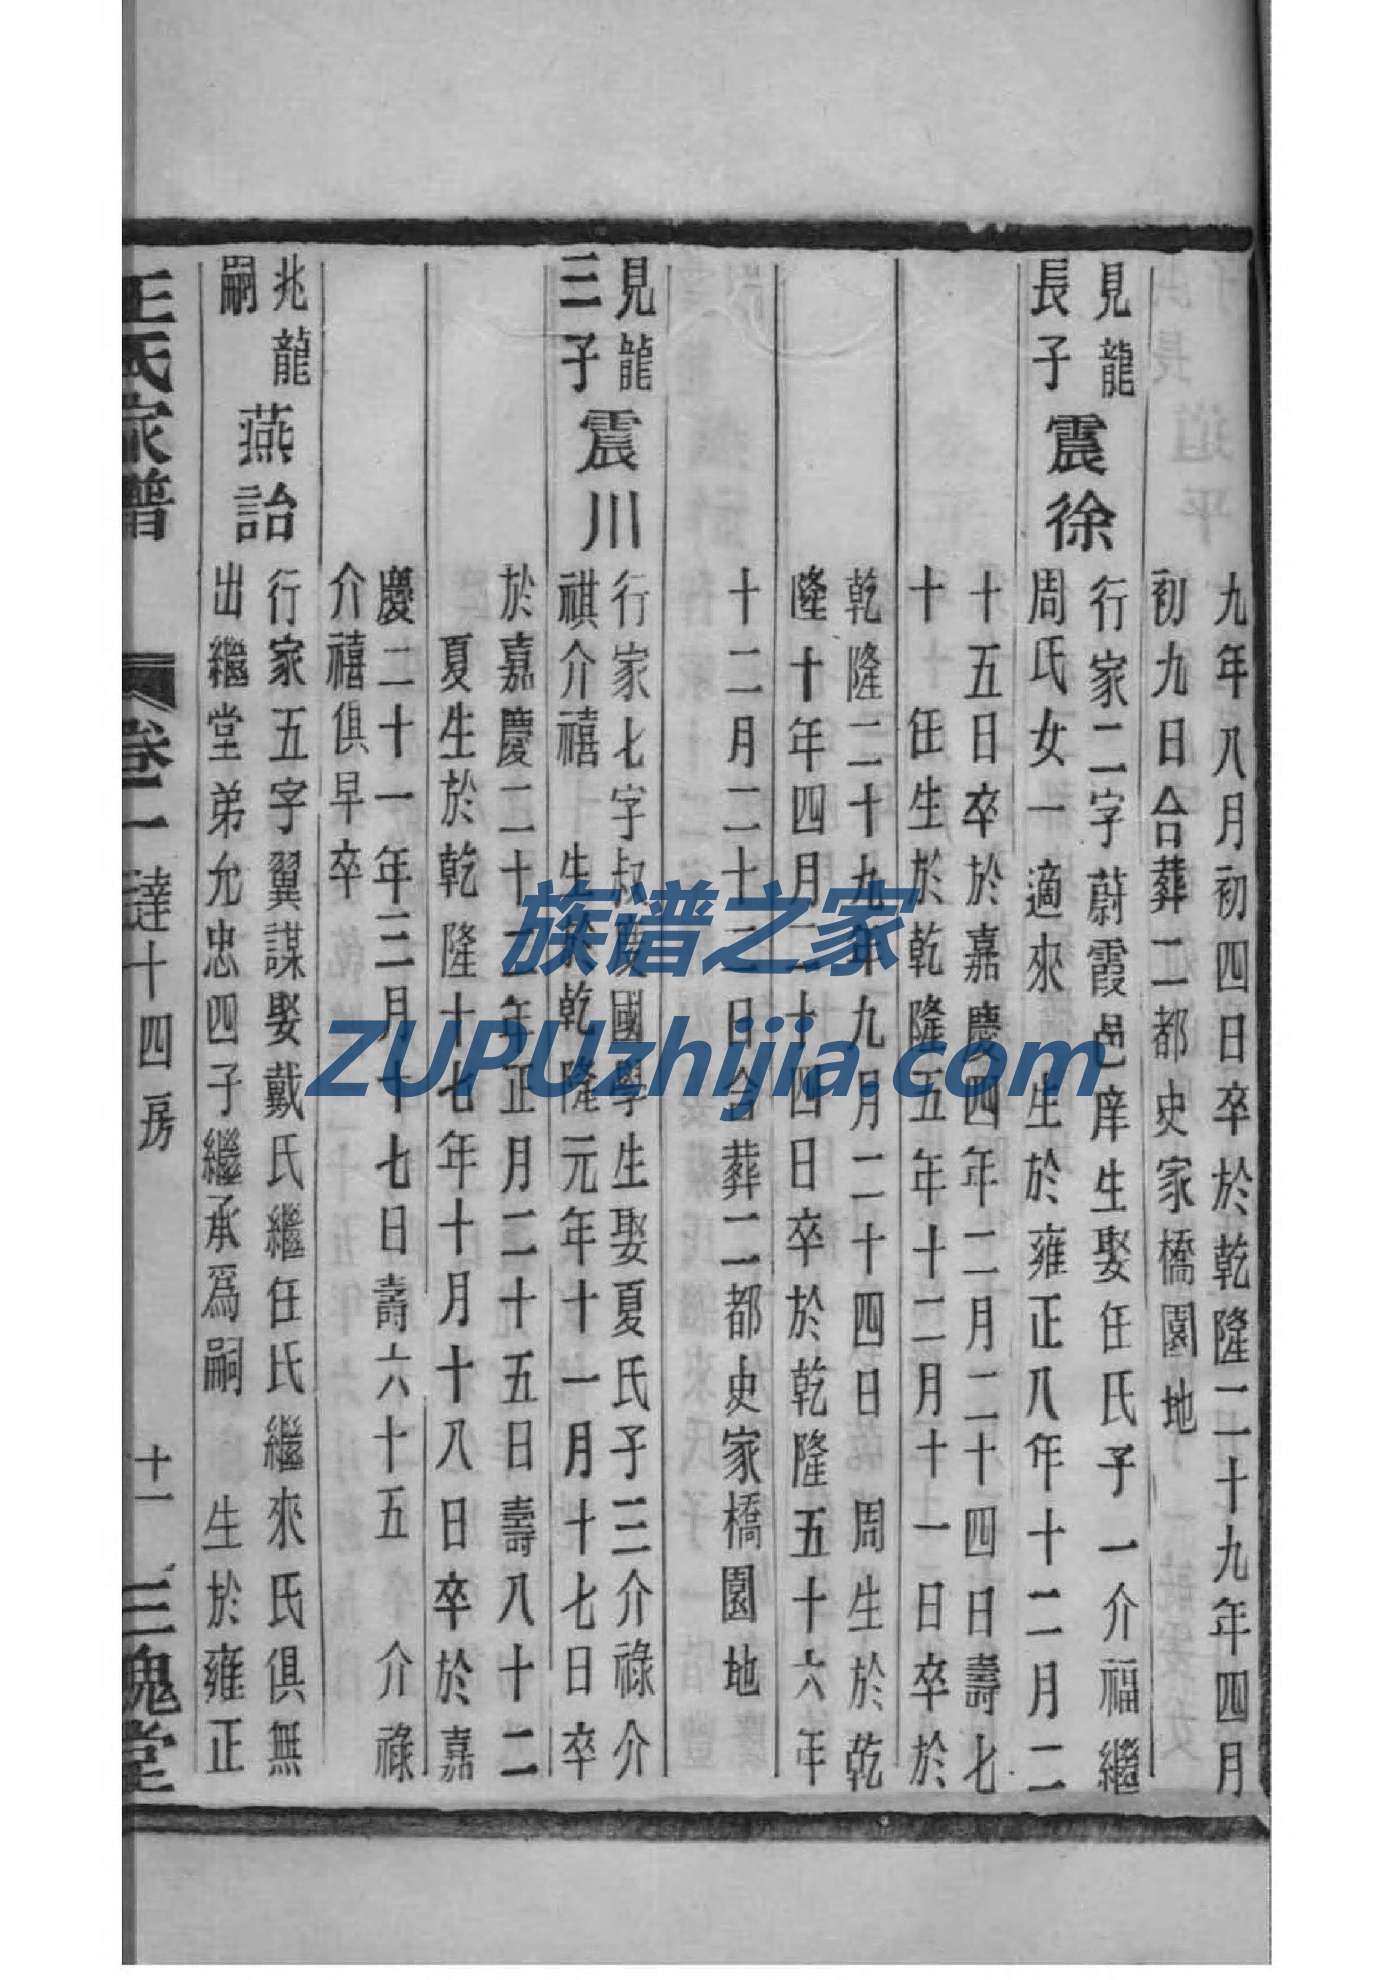 九年八月初四日卒於乾隆二十九年四月
初九日合葬二都史家橋園地
見龍
長子
震徐
行家二字蔚霞邑庠生娶任氏子一介福繼
周氏女一適來 生於雍正八年十二月二
十五日卒於嘉慶四年二月二十四日壽七
十 任生於乾隆五年十二月十一日卒於
乾隆二十九年九月二十四日 周生於乾
隆十年四月二十四日卒於乾隆五十六年
十二月二十二日合葬二都史家橋園地
見龍
三子
震川
行家七字叔度國學生娶夏氏子三介祿介
祺介禧 生於乾隆元年十一月十七日卒
於嘉慶二十二年正月二十五日壽八十二
夏生於乾隆十七年十月十八日卒於嘉
慶二十一年三月十七日壽六十五 介祿
介禧俱早卒
兆龍
嗣
燕詒
行家五字翼謀娶戴氏繼任氏繼來氏俱無
出繼堂弟允忠四子繼承爲嗣 生於雍正
王氏家譜
卷二
達十四房
十一
三槐堂
族谱之家
ZUPUzhijia.com